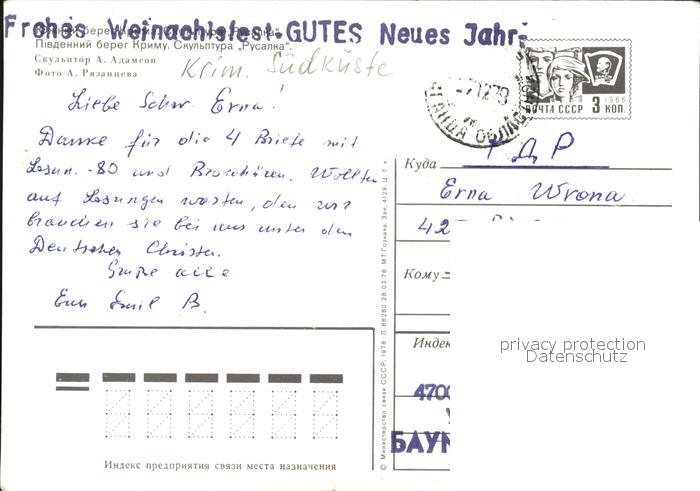 Frohes Weinachtsfest-GUTES Neues Jahr-
Південний берег Криму. Скульптура „Русалка".
Скульптор А. Адамсон
Фото А. Рязанцева
Krim. Südküste
ПОЧТА СССР 3 КОП.
1966
Liebe Schw. Erna!
Danke für die 4 Briefe mit
Losun. -80 und Broschüren. Wollten
auf Losungen warten, den wir
brauchen sie bei uns unter den
Deutschen Christen.
Grüße alle
Euer Emil B.
Куда ГДР
Erna Wrona
42
Кому
Индек
4700
БАУМ
privacy protection
Datenschutz
© Министерство связи СССР, 1978
МТ Гознака. Зак. 4129. Ц. 7 к.
Индекс предприятия связи места назначения